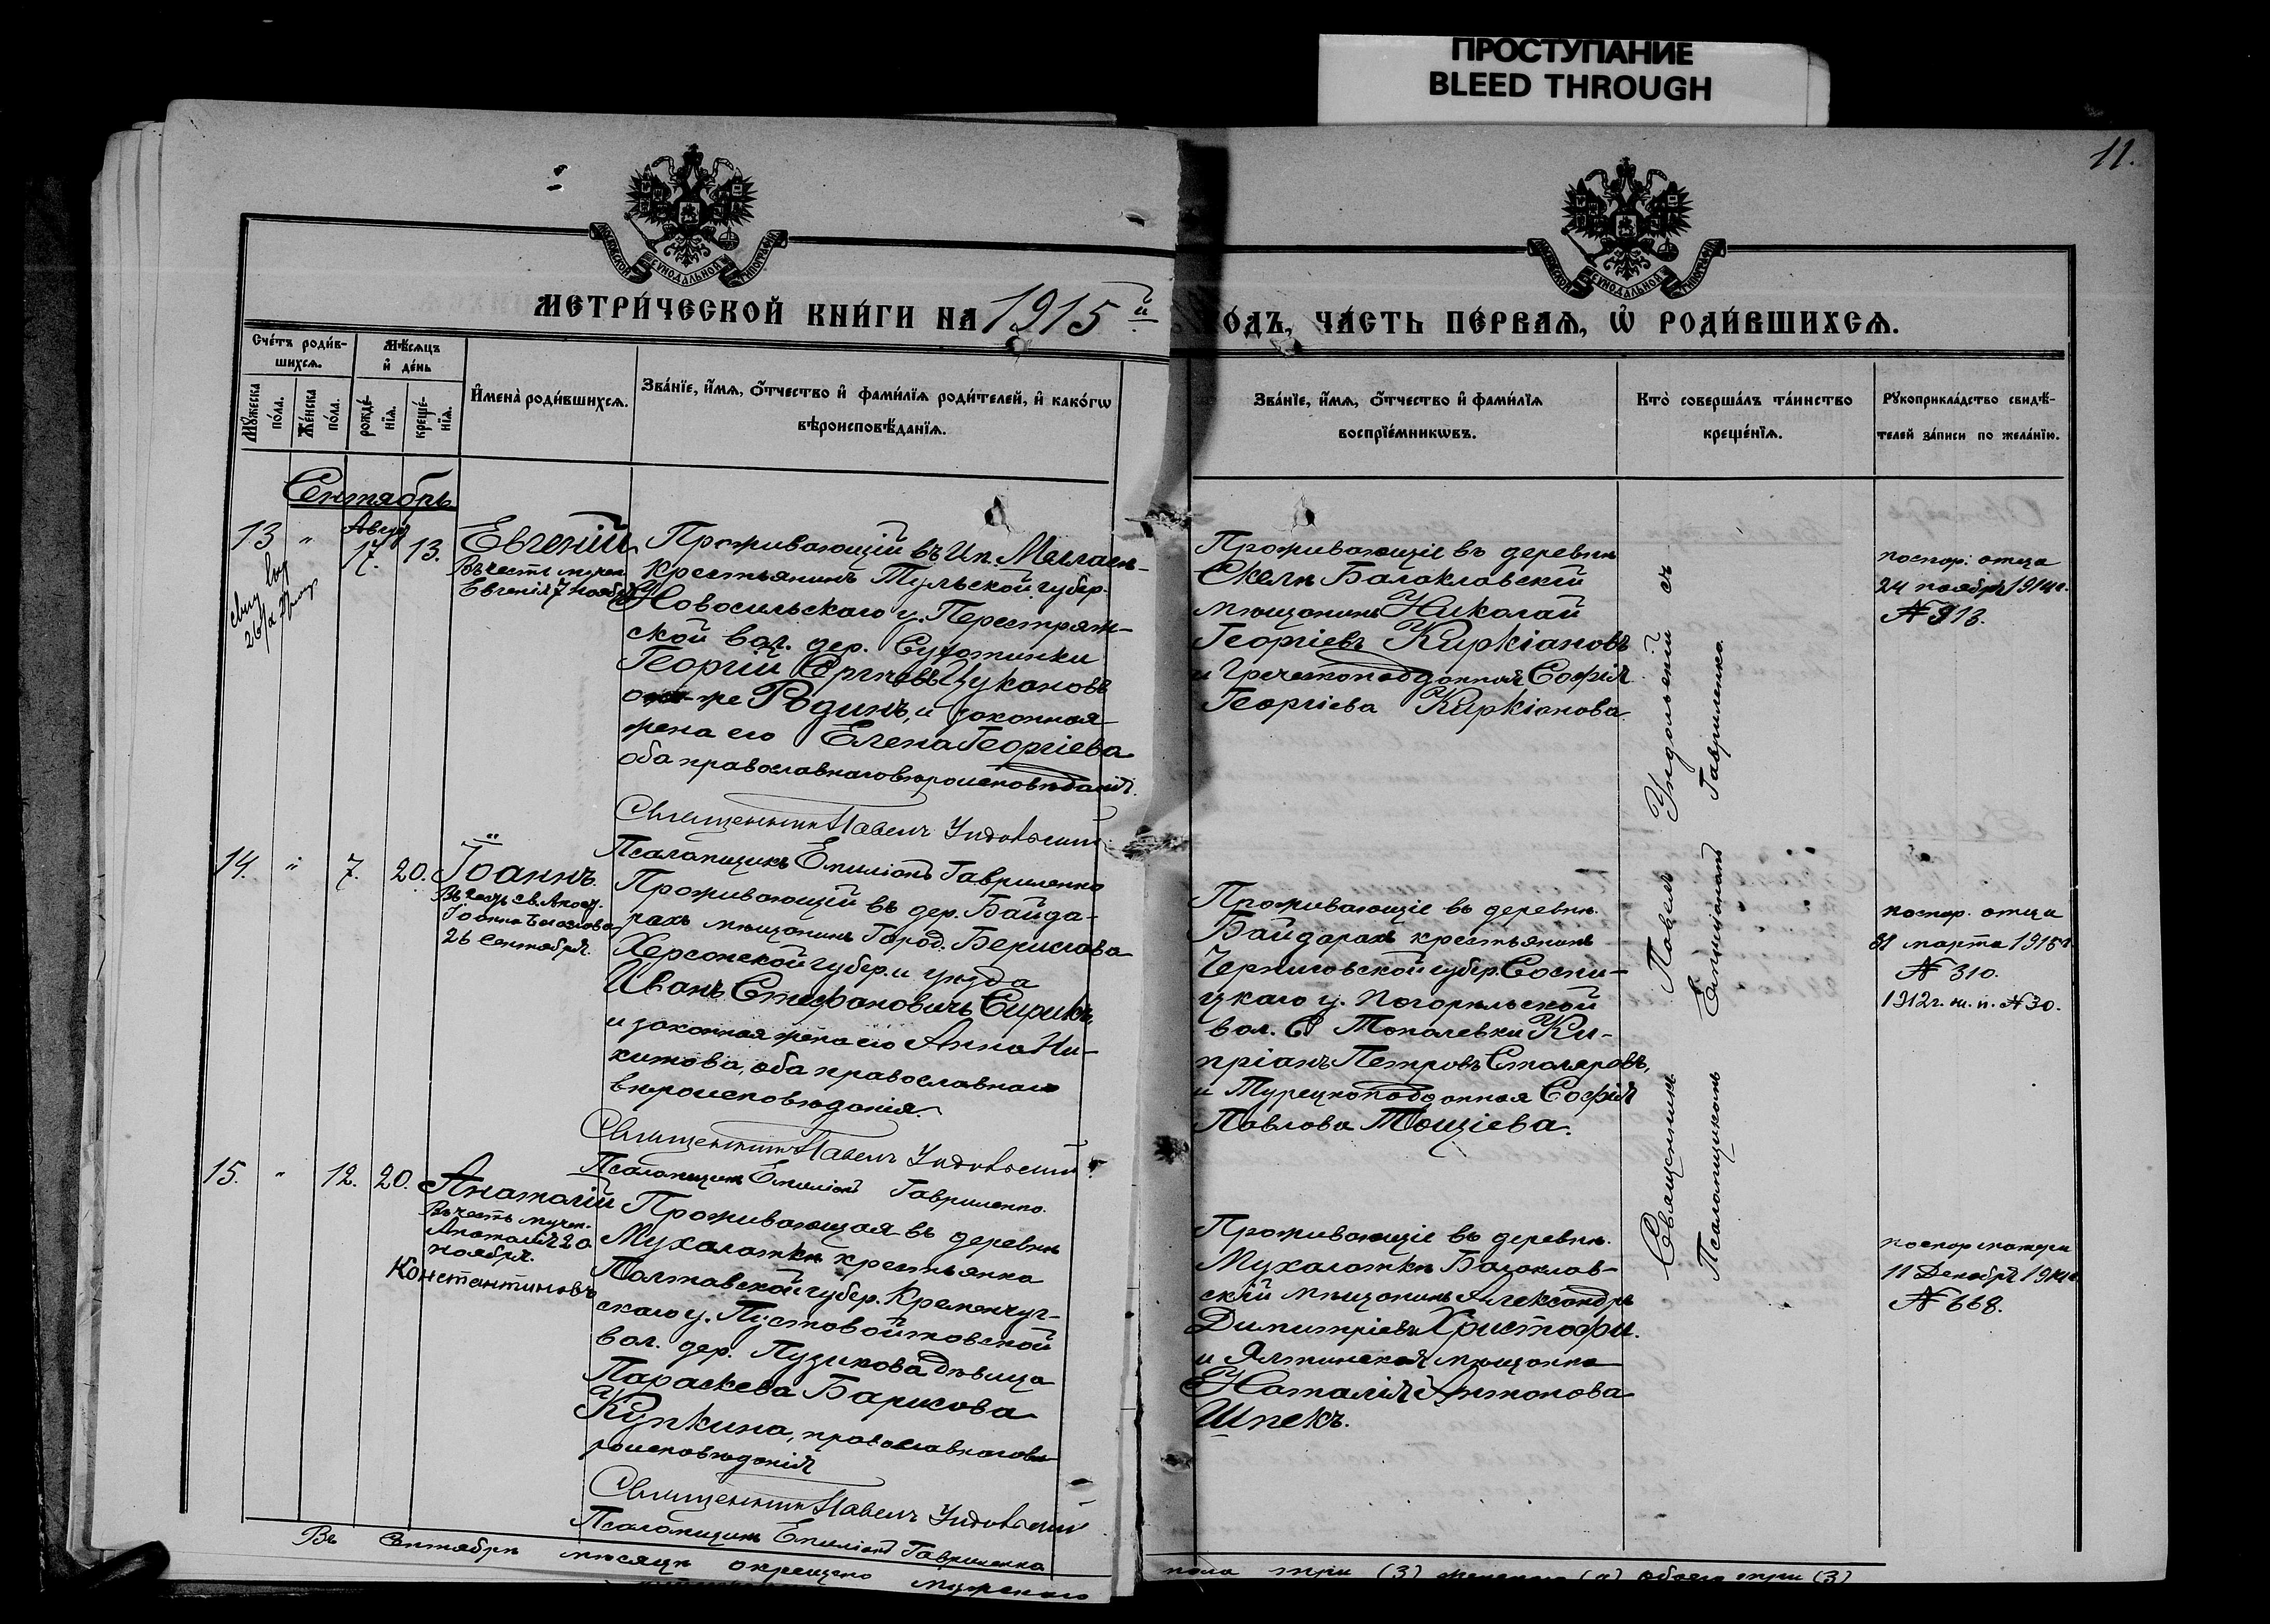 ПРОСТУПАНИЕ
BLEED THROUGH
11.
МОСКОВСКОЙ СѴНОДАЛЬНОЙ ТИПОГРАФІИ
МОСКОВСКОЙ СѴНОДАЛЬНОЙ ТИПОГРАФІИ
МЕТРИ́ЧЕСКОЙ КНИ́ГИ НА 1915й
О́ДЪ, ЧА́СТЬ ПЕ́РВАѦ, Ѡ҆ РОДИ́ВШИХСѦ.
Сче́тъ роди́в-
шихсѧ.
Мꙋ́жеска
по́ла.
Же́нска
по́ла.
Мѣ́сѧцъ
и҆ де́нь
рожде́-
нїѧ.
креще́-
нїѧ.
И҆мена̀ роди́вшихсѧ.
Зва́нїе, и҆́мѧ, ѻ҆́тчество и҆ фами́лїѧ роди́телей, и҆ како́гѡ
вѣроисповѣ́данїѧ.
Зва́нїе, и҆́мѧ, ѻ҆́тчество и҆ фами́лїѧ
воспрїе́мникѡвъ.
Кто̀ соверша́лъ та́инство
креще́нїѧ.
Рꙋкоприкла́дство свидѣ́-
телей за́писи по жела́нїю.
Сентябрь
13 " Авгу 17. 13.
Евгеній
Въ честь мучен.
Евгенія 7 ноября
Проживающій въ Им. Мелласъ
крестьянинъ Тульской губер.
Новосильскаго у. Перестряж-
ской вол. дер. Сухотинки
Георгій Сергѣевъ Цукановъ
онъ-же Родинъ, и законная
жена его Елена Георгіева
оба православнаго вѣроисповѣданія.
Священникъ Павелъ Ундольскій
Псаломщикъ Емиліанъ Гавриленко
Проживающіе въ деревнѣ
Скели Балаклавскій
мѣщанинъ Николай
Георгіевъ Киркіановъ
и Греческоподданная Софія
Георгіева Киркіанова.
паспор: отца
24 ноября 1914г.
№ 913.
14. " 7. 20.
Іоаннъ.
Въ честь св. Апост.
Іоанна Богослова
26 Сентября.
Проживающій въ дер. Байда-
рахъ мѣщанинъ Город. Берислава
Херсонской губер. и уѣзда
Иванъ Стефановичъ Сирикъ,
и законная жена его Анна Ни-
китова, оба православнаго
вѣроисповѣданія.
Священникъ Павелъ Ундольскій
Псаломщикъ Емиліанъ Гавриленко.
Проживающіе въ деревнѣ.
Байдарахъ крестьянинъ
Черниговской губер. Сосни-
цкаго у. Погорѣльской
вол. С Тополевки Ки-
пріанъ Петровъ Столяровъ,
и Турецкоподданная Софія
Павлова Тощіева.
паспор. отца
31 марта 1915г.
№ 310.
1912г. м. п. № 30.
15. " 12. 20.
Анатолій
Въ честь мучен.
Анатолія 20
ноября.
Константиновъ
Проживающая въ деревнѣ
Мухалаткѣ крестьянка
Полтавской губер. Кременчуг-
скаго у. Пустовойтовской
вол. дер. Пузикова дѣвица
Параскева Борисова
Купкина, православнаго вѣ-
роисповѣданія
Священникъ Павелъ Ундольскій
Псаломщикъ Емиліанъ Гавриленко
Проживающіе въ деревнѣ.
Мухалаткѣ Балаклав-
скій мѣщанинъ Александръ
Димитріевъ Христофи.
и Ялтинская мѣщанка
Наталія Антонова
Шпекъ.
паспор матери
11 Декабря 1914г.
№ 668.
Священникъ Павелъ Ундольскій съ
Псаломщикомъ Емиліаномъ Гавриленко.
Въ Сентябрѣ мѣсяцѣ окрещено мужескаго
пола три (3) женскаго (а) обоего три (3)